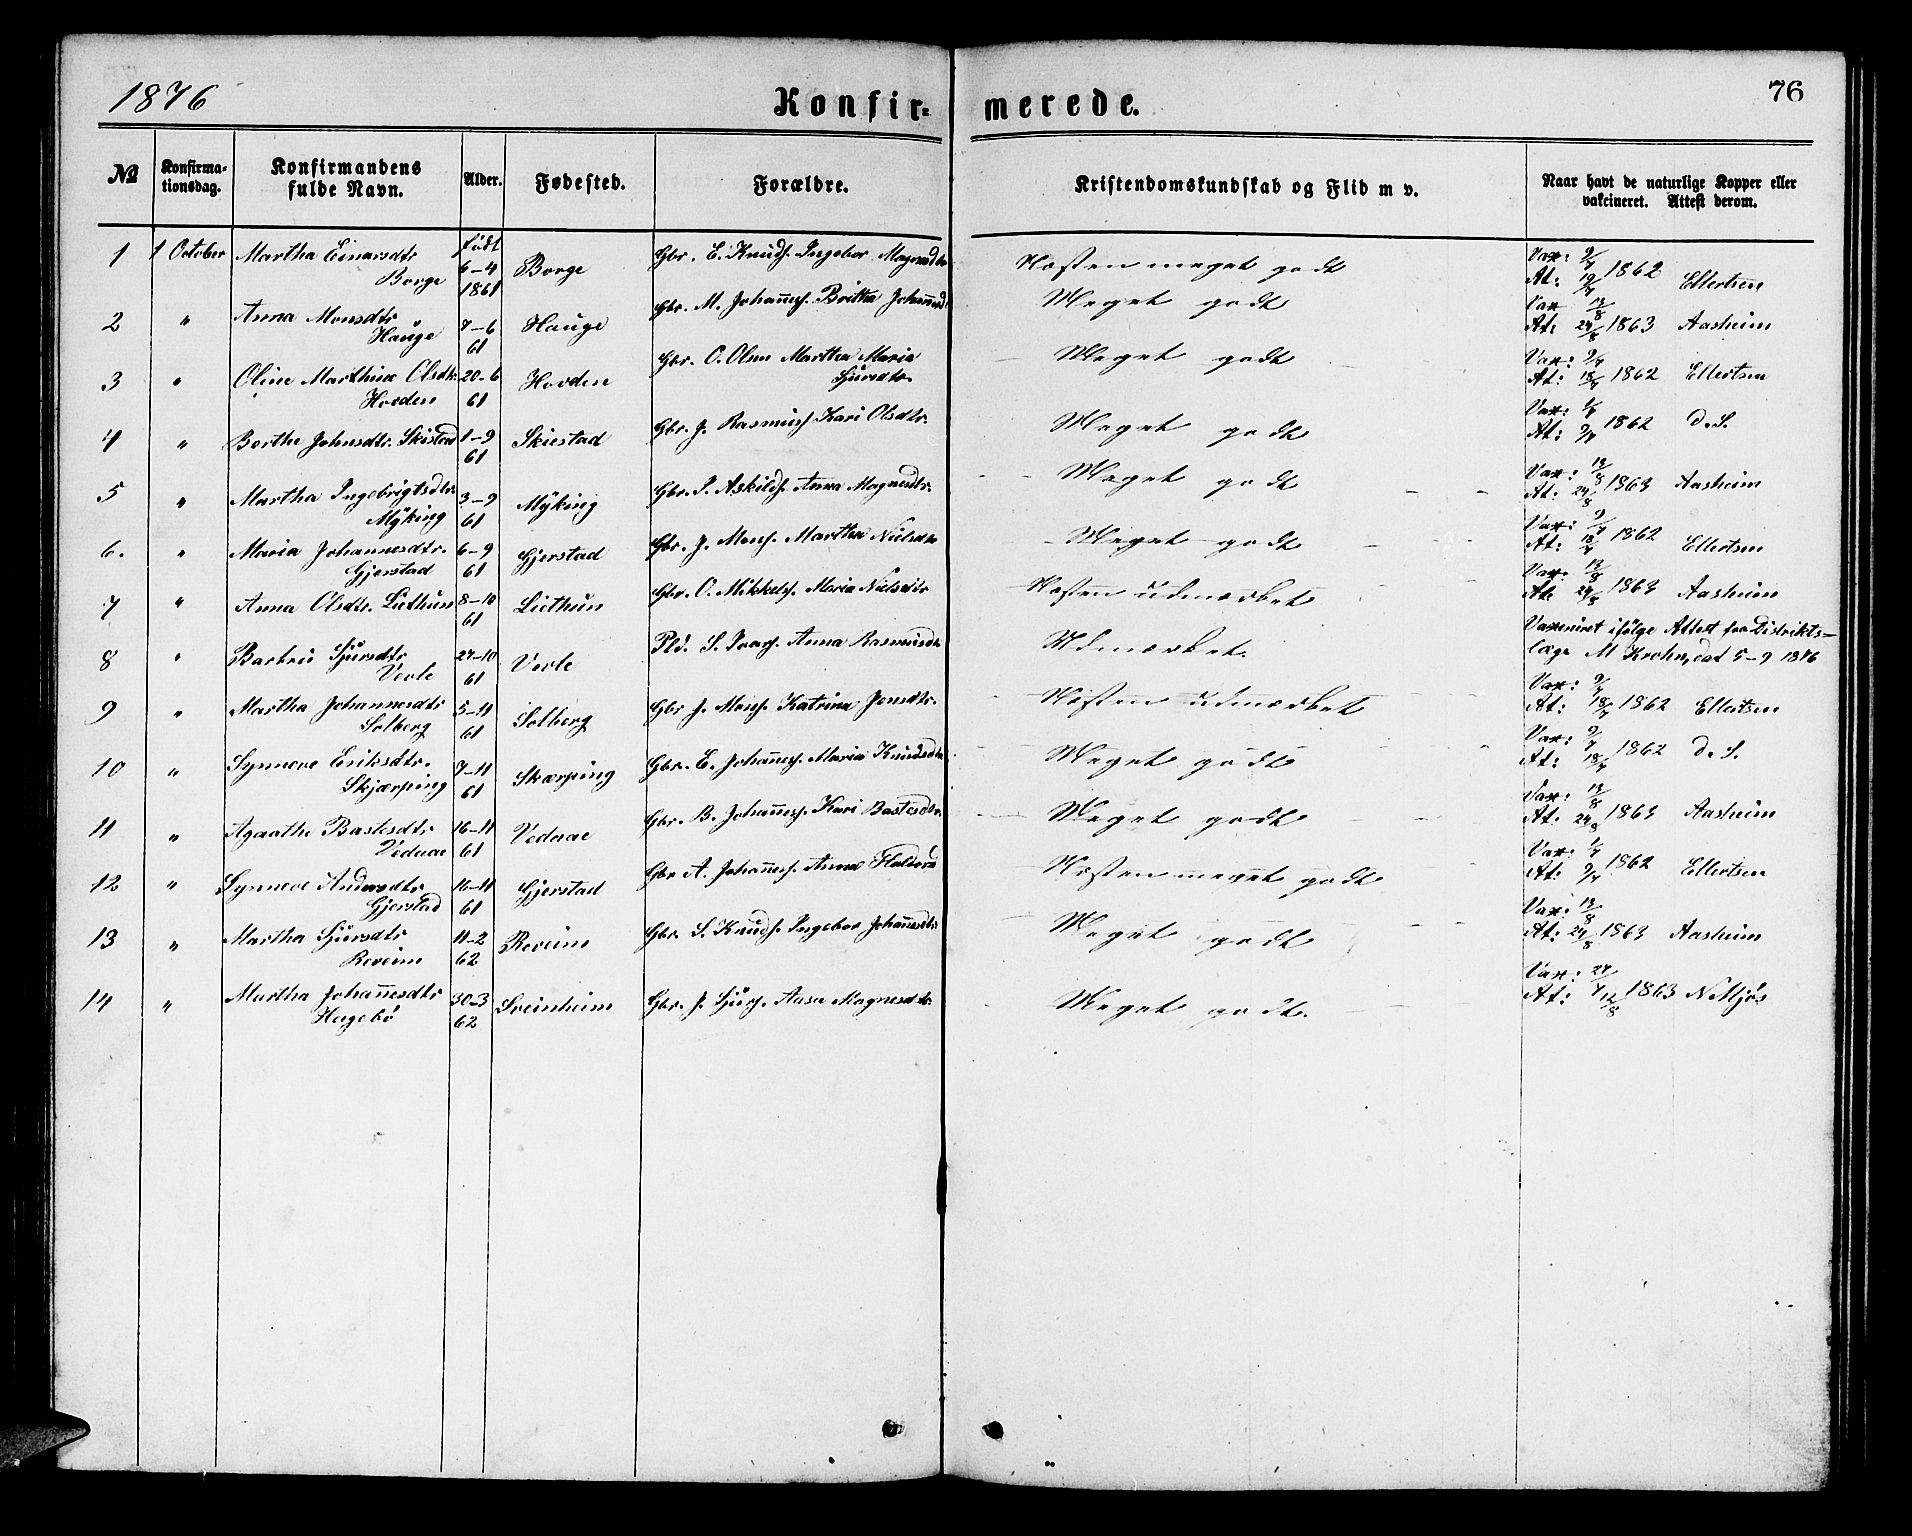 1876
Konfir-
merede.
76
№
Konfirma-
tionsdag.
Konfirmandens
fulde Navn.
Alder.
Fødested.
Forældre.
Kristendomskundskab og Flid m v.
Naar havt de naturlige Kopper eller
vakcineret. Attest derom.
1 1 October Martha Einarsdtr Borge født 6-4 1861 Borge Gbr. E. Knuds. Ingebor Magnusdtr Næsten meget godt Vax: 9/7 At: 1862 Ellertsen
2 " Anna Monsdtr Hauge 7-6 61 Hauge Gbr. M. Johannes. Brittha Johannesd Meget godt Vax 13/8 At: 24/8 1863 Aasheim
3 " Oline Marthine Olsdtr. Hovden 20-6 61 Hovden Gbr. O. Olsen Martha Maria Sjursdtr. Meget godt Vax: 9/7 At: 18/7 1862 Ellertsen
4 " Berthe Johnsdtr. Skistad 1-9 61 Skiestad Gbr. J. Rasmus. Kari Olsdtr. Meget godt Vax: 1/7 At: 9/7 1862 d. S.
5 " Martha Ingebrigtsdtr. Mÿking 3-9 61 Mÿking Gbr. I. Askilds. Anna Magnesdtr. Meget godt Vax: 13/8 At: 24/8 1863 Aasheim
6. " Maria Johannesdtr. Gjerstad 6-9 61 Gjerstad Gbr. J. Mons. Martha Nielsdtr Meget godt Vax: 9/7 At: 18/7 1862 Ellertsen
7 " Anna Olsdtr. Liethun 8-10 61 Liethun Gbr. O. Mikkels. Maria Nielsdtr Næsten udmærket Vax: 13/8 At: 24/8 1863 Aasheim
8 " Barbru Sjursdtr Verle 27-10 61 Verle Pld. S. Ivars. Anna Rasmusdtr Udmærket. Vaxeniret ifølge Attest fra Distrikts-
læge M Krohn, dat 5-9 1876
9 " Martha Johannesdtr Solberg 5-11 61 Solberg Gbr J. Mons. Katrina Jonsdtr. Næsten udmærket Vax: 9/7 At: 18/7 1862 Ellertsen
10 " Synneve Eriksdtr. Skjærping 7-11 61 Skærping Gbr. E. Johannes. Maria Knudsdtr Meget godt Vax: 9/7 At: 18/7 1862 d. S.
11 " Agaathe Bastesdtr Vednae 16-11 61 Vednae Gbr. B. Johannes. Kari Bastesdtr. Meget godt Vax: 13/8 At. 24/8 1863 Aasheim
12 " Synneve Andersdtr Gjerstad 16-11 61 Gjerstad Gbr A. Johannes. Anna Næsten meget godt Vax: 1/7 At: 9/7 1862 Ellertsen
13 " Martha Sjursdtr Reveim 11-2 62 Reveim Gbr. S. Knuds. Ingebor Johannesdtr. Meget godt Vax: 13/8 At: 24/8 1863 Aasheim
14 " Martha Johannesdtr Hagebö 30-3 62 Sveinheim Gbr. J. Sjurs. Aasa Magnesdtr. Meget godt. Vax: 27/7 At: 12/8 1863 N Mjøs